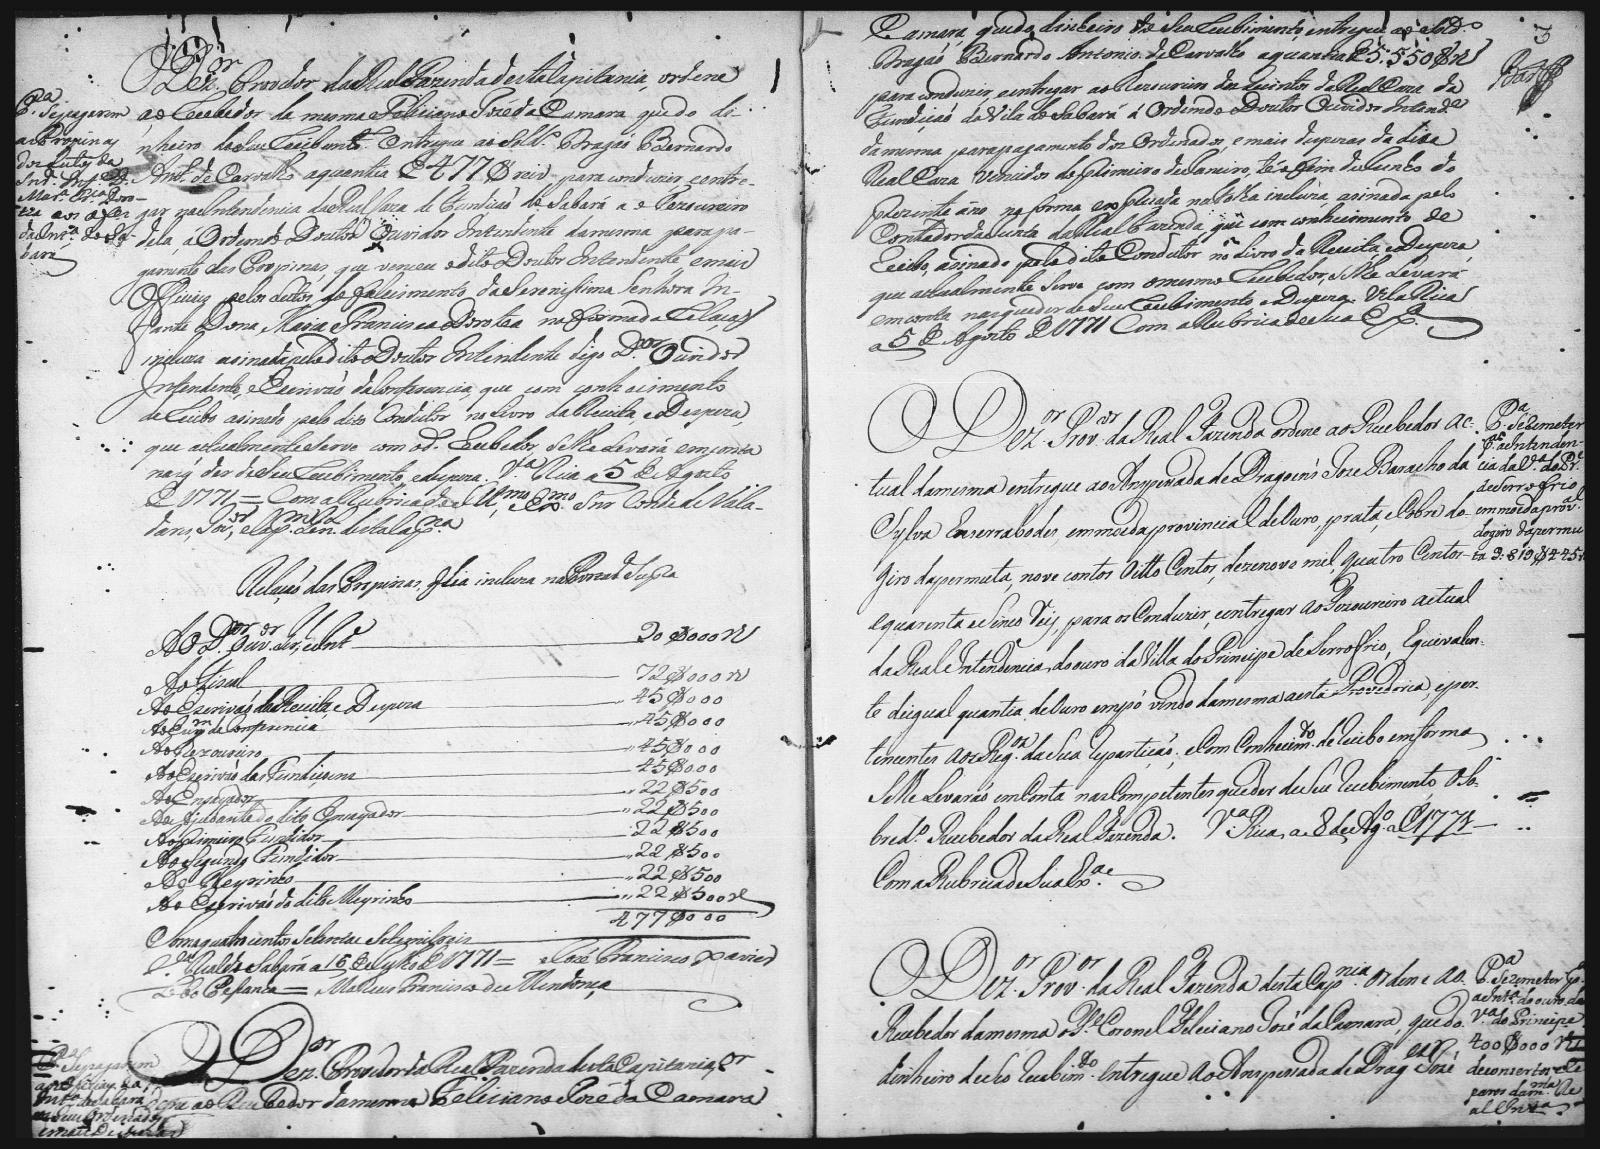 Dez.or Provedor da Real Fazenda desta Capitania, ordene
ao Recebedor da mesma Feliciano Joze da Camara que do di-
nheiro do seu Recebim.to entregue ao Sold.o Dragão Bernardo
Ant.o de Carvalho a quantia de 477$ reis para conduzir, e entre-
gar na Intendencia da Real Caza de Fundição do Sabará a o Tezoureiro
dela, a Ordem do Doutor Ouvidor Intendente da mesma para pa-
gamento das Propinas, que venceu o dito Doutor Intendente, e mais
Officiaes pelos Lutos do falecimento da Serenissima Senhora In-
fante Dona Maria Francisca Dorotea na forma da Relação
incluza asinada pelo dito Doutor Intendente digo D.or Ouvidor
Intendente, e Escrivão da Conferencia, que com conhecimento
de Recibo asinado pelo dito Condutor no Livro da Receita, e Despeza,
que actualmente serve com o d.o Recebedor, se lhe Levará em conta
nas q dar de seu Recebimento, e despeza. V.a Rica a 5 de Agosto
de 1771 = Com a Rubrica do Ill.mo, e Ex.mo Snr Conde de Vala-
dares, Gov.or, e Cap.m Gen.al desta Cap.nia
P.a Se pagarem
as Propinas
dos Lutos da
Snr.a Inf.e D.
Mar.a Fr.ca Doro-
tea aos Offer
da Int.a do Sa-
bará
Relação das Propinas, q hia incluza na Portr.a Supra
Ao D.or Ouv.or Int.e 90$000 r
Ao Fiscal 72$000 r
Ao Escrivão da Receita, e Despeza 45$000
Ao Escr.m da Conferencia 45$000
Ao Tezoureiro 45$000
Ao Escrivão das Fundiçoens 45$000
Ao Ensayador 22$500
Ao Ajudante do dito Ensayador 22$500
Ao Primeiro Fundidor 22$500
Ao Segundo Fundidor 22$500
Ao Meyrinho 22$500
Ao Escrivão do dito Meyrinho 22$500 r
477$000
Soma quatro centos setenta e sete mil reis
V.a Real do Sabará a 16 de Julho de 1771 = José Francisco Xavier
Lobo Pessanha = Matheus Francisco de Mendonça
Dez.or Provedor da Real Fazenda desta Capitania, or
dene ao Recebedor da mesma Feliciano Joze da Camara
P.a Se pagarem
Int.a do Sabará
os seus Ordenados
e mais Despezas
Camara, que do dinheiro do seu Recebimento entregue ao Sold.o
Dragão Bernardo Antonio de Carvalho a quantia de 5:550$ r
para conduzir, e entregar ao Tezoureiro dos Quintos da Real Caza da
Fundição da Vila do Sabará á Ordem do Doutor Ouvidor Intend.e
da mesma para pagamento dos Ordenados, e mais despezas da dita
Real Caza vencidos do primeiro de Janeiro, té o fim de Junho do
prezente ano na forma explicada na folha incluza, asinada pelo
Contador da Junta da Real Fazenda, que com conhecimento de
Recibo, asinado pelo dito Condutor no Livro da Receita, e Despeza,
que actualmente Serve com o mesmo Recebedor, se lhe Levará
em conta nas que der de seu Recebimento, e Despeza. Vila Rica
a 5 de Agosto de 1771 Com a Rubrica de Sua Ex.a
Dez.or Prov.or da Real Fazenda ordene ao Recebedor ac-
tual da mesma entregue ao Anspesada de Dragoens Joze Baracho da
Sylva Enserrabodes, em moeda provincial de Ouro, prata, e Cobre do
giro da permuta, nove contos Oitto Centos, dezenove mil, quatro Centos
e quarenta e Sinco reis, para os Conduzir, e entregar ao Tezoureiro actual
da Real Intendencia do ouro da Villa do Principe do Serro frio, Equivalen-
te de igual quantia de Ouro em pó vindo da mesma a esta Provedoria, e per-
tencentes aos Reg.os da Sua repartição, e Com Conhecim.to de recibo em forma
Se lhe Levará em Conta nas Competentes que der de seu recebimento O so-
bred.o Recebedor da Real Fazenda. V.a Rica, a 8 de Ag.o de 1771
Com a Rubrica de Sua Ex.a
P.a Se remeter
p.a a Intenden-
cia da V.a do Pr.e
do Serro frio
em moeda prov.al
do giro da permu
ta 9:819$445 r
Dez.or Prov.or da Real Fazenda desta Cap.nia ordene ao
Recebedor da mesma o T.e Coronel Feleciano José da Camara, que do
dinheiro de seo recebim.to entregue ao Anspesada de Drag.es José
P.a Se remeter p.a
a Int.a do ouro da
V.a do Principe
400$000 r
de consertos e re
paros da m.ma Re
al Int.a